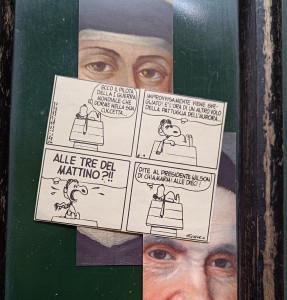 ECCO IL PILOTA
DELLA I GUERRA
MONDIALE CHE
DORME NELLA SUA
CUCCETTA...
IMPROVVISAMENTE VIENE SVE-
GLIATO! E' L'ORA DI UN ALTRO VOLO
DELLA PATTUGLIA DELL'AURORA.
ALLE TRE DEL
MATTINO?!!
DITE AL PRESIDENTE WILSON
DI CHIAMARMI ALLE DIECI!